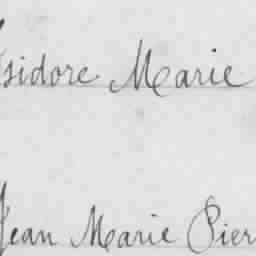 Isidore Marie
Jean Marie Pier